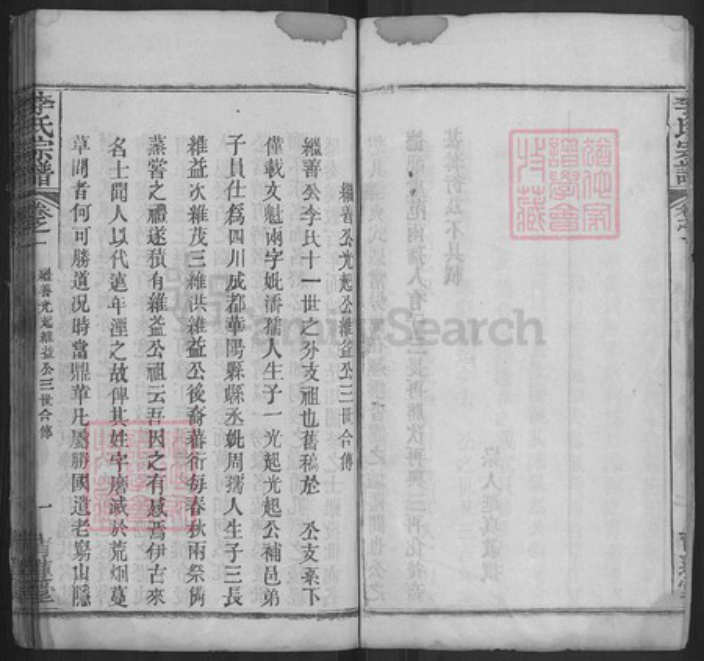 繼善公光起公維益公三世合傳
繼善公李氏十一世之分支祖也舊稿於 公支系下
僅載文魁兩字妣潘孺人生子一光起光起公補邑弟
子員仕為四川成都華陽縣縣丞妣周孺人生子三長
維益次維茂三維洪維益公後裔蕃衍每春秋兩祭備
蒸嘗之禮遂積有維益公祖云吾因之有感焉伊古來
名士聞人以代遠年湮之故俾其姓字磨滅於荒烟蔓
草間者何可勝道況時當鼎革凡屬勝國遺老窮山隱
李氏宗譜
卷之一
繼善光起維益公三世合傳
一
青蓮堂
李氏宗譜
FamilySearch